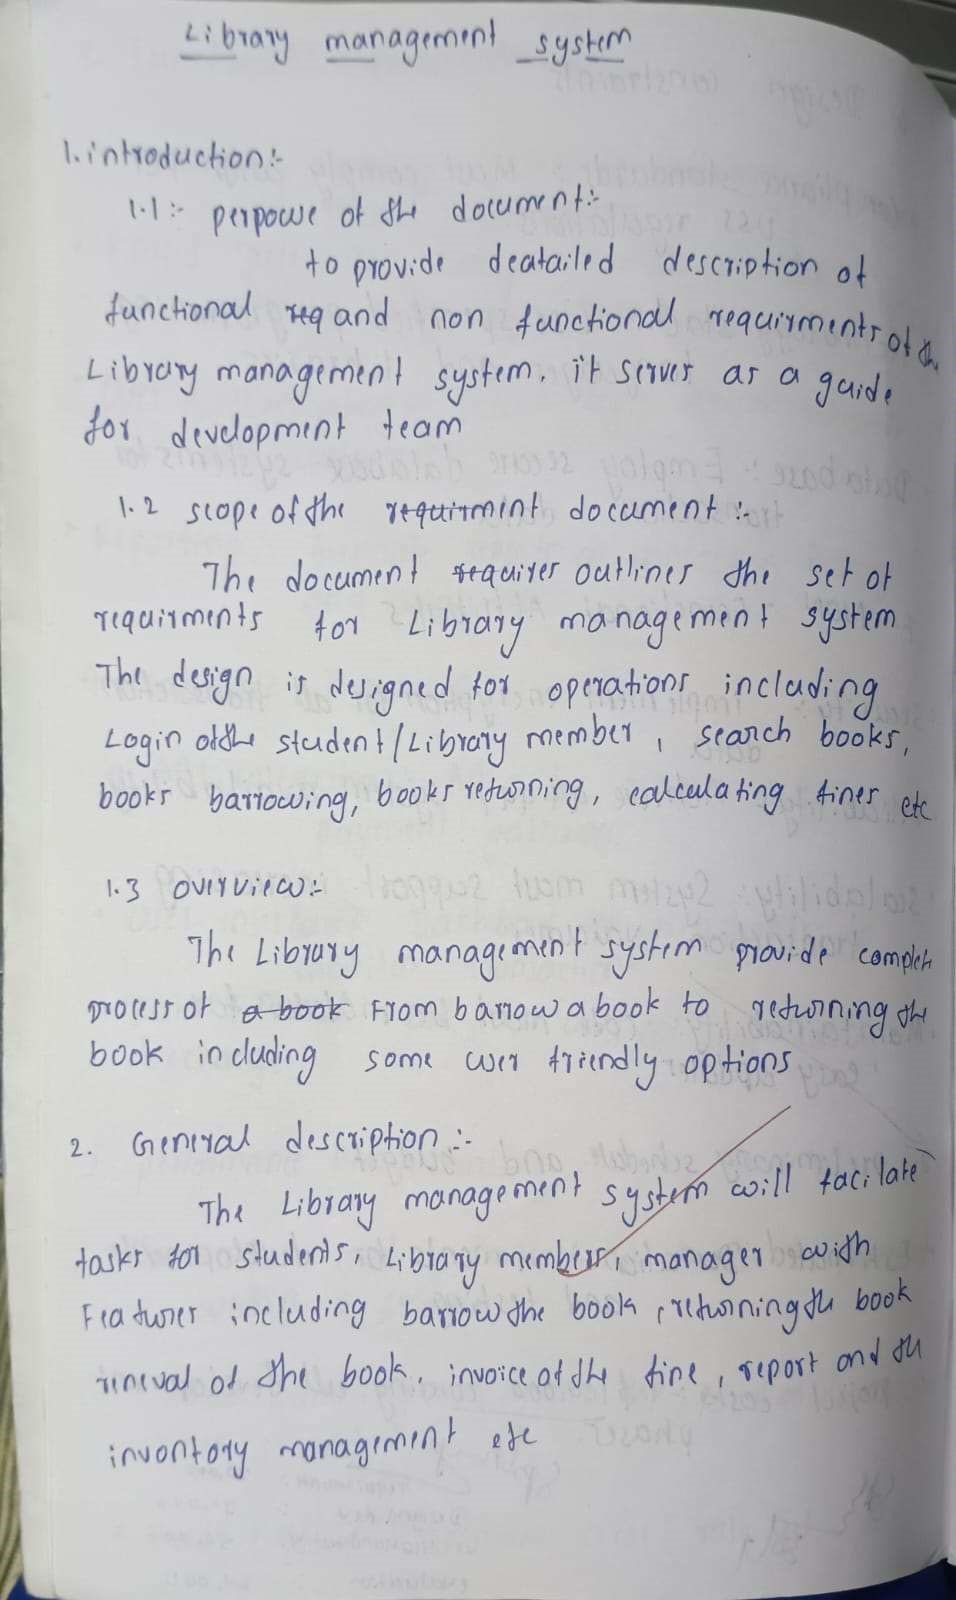 Library management system
1. introduction:-
1.1:- perpowe of the document:-
to provide deatailed description of
functional req and non functional requirments of the
Library management system. it serves as a guide
for development team
1.2 scope of the requirmint document :-
The document requires outlines the set of
requirments for Library management system
The design is designed for operations including
Login of the student/Library member, search books,
books barrowing, books returning, calculating fines etc
1.3 overview:-
The Library management system provide complete
process of a book From barrow a book to returning the
book including some user friendly options
2. General description :-
The Library management system will facilate
tasks for students, Library members, manager with
Features including barrow the book, returning the book
renewal of the book, invoice of the fine, report and the
inventory management etc